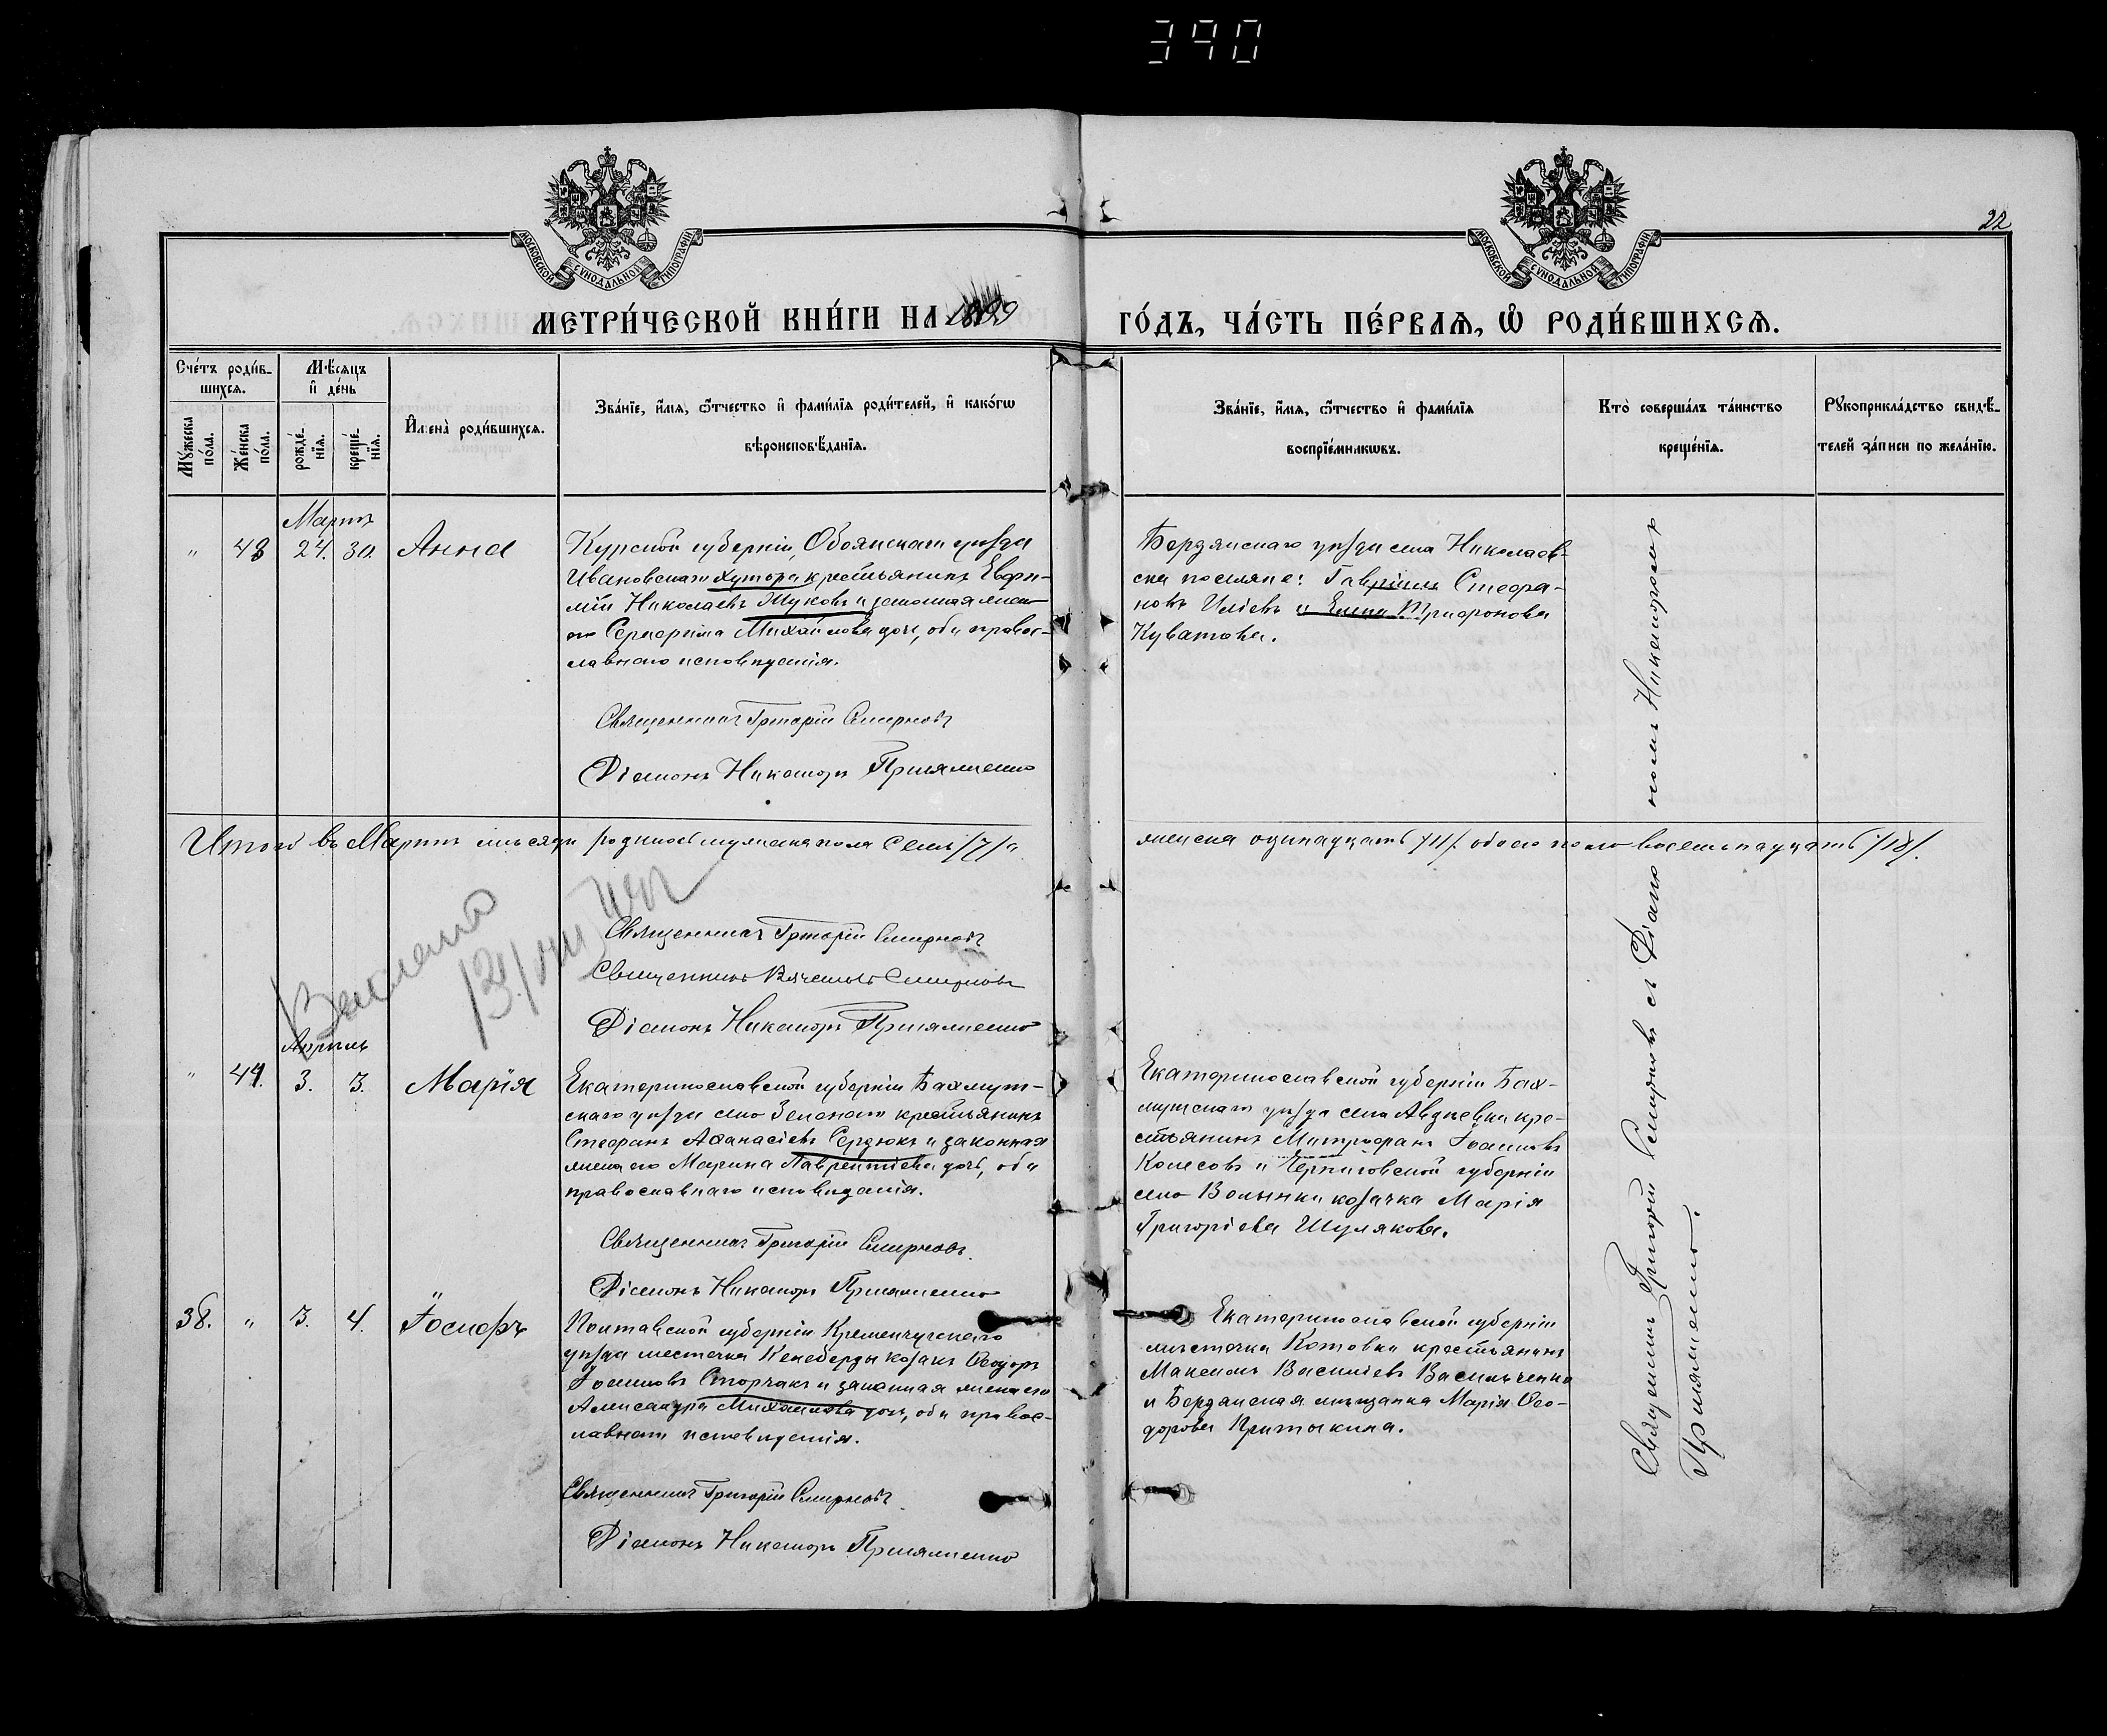 390
22
МОСКОВСКОЙ СѴНОДАЛЬНОЙ ТИПОГРАФІИ
МОСКОВСКОЙ СѴНОДАЛЬНОЙ ТИПОГРАФІИ
МЕТРИ́ЧЕСКОЙ КНИ́ГИ НА 1899 ГО́ДЪ, ЧА́СТЬ ПЕ́РВАѦ, Ѽ РОДИ́ВШИХСѦ.
Сче́тъ роди́в-
шихсѧ.
Мѣ́сѧцъ
и҆ де́нь
Мꙋ́жеска
по́ла.
Же́нска
по́ла.
рожде́-
нїѧ.
креще́-
нїѧ.
И҆мена̀ роди́вшихсѧ.
Зва́нїе, и҆́мѧ, ѻ҆́тчество и҆ фами́лїѧ роди́телей, и҆ како́гѡ
вѣроисповѣ́данїѧ.
Зва́нїе, и҆́мѧ, ѻ҆́тчество и҆ фами́лїѧ
воспрїе́мникѡвъ.
Кто̀ соверша́лъ та́инство
креще́нїѧ.
Рꙋкоприкла́дство свидѣ́-
телей за́писи по жела́нїю.
Мартъ
" 43 24. 30. Анна
Курской губерніи, Обоянскаго уѣзда
Ивановскаго хутора крестьянинъ Евфи-
мій Николаевъ Жуковъ и законная жена
его Михайлова дочь, оба правос-
лавнаго исповѣданія.
Священникъ Григорій Смирновъ
Діаконъ Никаноръ
Бердянскаго уѣзда села Николаев-
ка поселяне: Гавріилъ Стефа-
новъ Иліевъ и Елена Трифонова
Куватова.
Итого въ Мартѣ мѣсяцѣ родилось мужеска пола семь /7/ а
женска одинадцать /11/. обоего пола восемьнадцать /18/.
Священникъ Григорій Смирновъ
Священникъ Смирновъ
Діаконъ Никаноръ
Апрѣль
" 44. 3. 3. Марія
Екатеринославской губерніи Бахмут-
скаго уѣзда село Зеленаго крестьянинъ
Стефанъ Аѳанасіевъ Сердюкъ и законная
жена его Марина Лаврентіева дочь, оба
православнаго исповѣданія.
Священникъ Григорій Смирновъ
Діаконъ Никаноръ
Екатеринославской губерніи Бах-
мутскаго уѣзда села Авдѣевки кре-
стьянинъ Митрофанъ Іоанновъ
Колесовъ и Черниговской губерніи
село Волынки козачка Марія
Григоріева Шулякова.
38. " 3. 4. Іосифъ
Полтавской губерніи Кременчугскаго
уѣзда местечка Келеберды козакъ Ѳеодоръ
Іоанновъ Сторчакъ и законная жена его
Александра Михаилова дочь, оба правос-
лавнаго исповѣданія.
Священникъ Григорій Смирновъ
Діаконъ Никаноръ
Екатеринославской губерніи
мѣстечка Котовки крестьянинъ
Максимъ Василіевъ Васильченко
и Бердянская мѣщанка Марія Ѳео-
дорова Притыкина.
Священникъ Григорій Смирновъ съ Діако номъ Никаноромъ